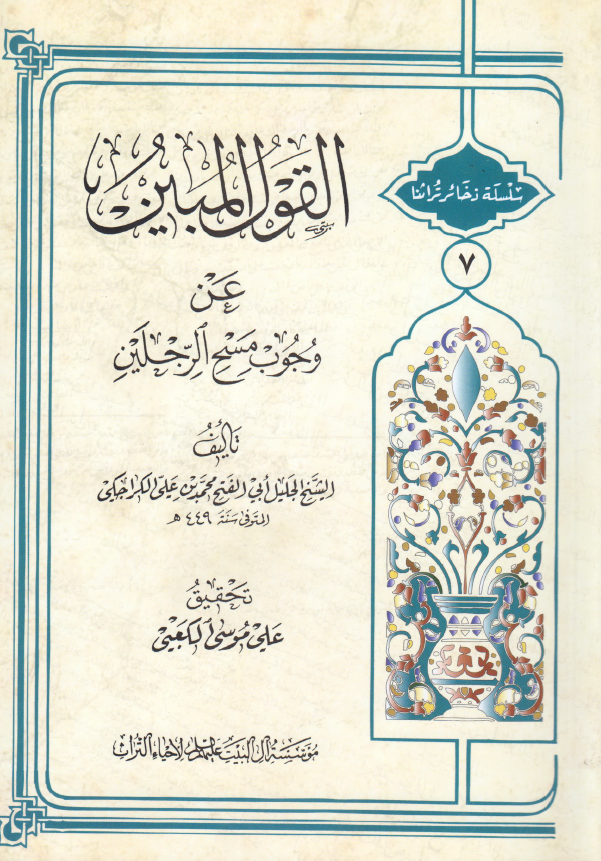 سلسلة ذخائر تراثنا
٧
القول المبين
عَن
وجُوبْ مَسْحِ الرِّجْلَين
تأليفُ
الشيخ الجليل أبي الفتح محمد بن علي الكراجكي
المتوفى سَنَة ٤٤٩ هـ
تحقيقُ
علي موسى الكعبي
مؤسسة آل البيت عليهم السلام لإحياء التراث